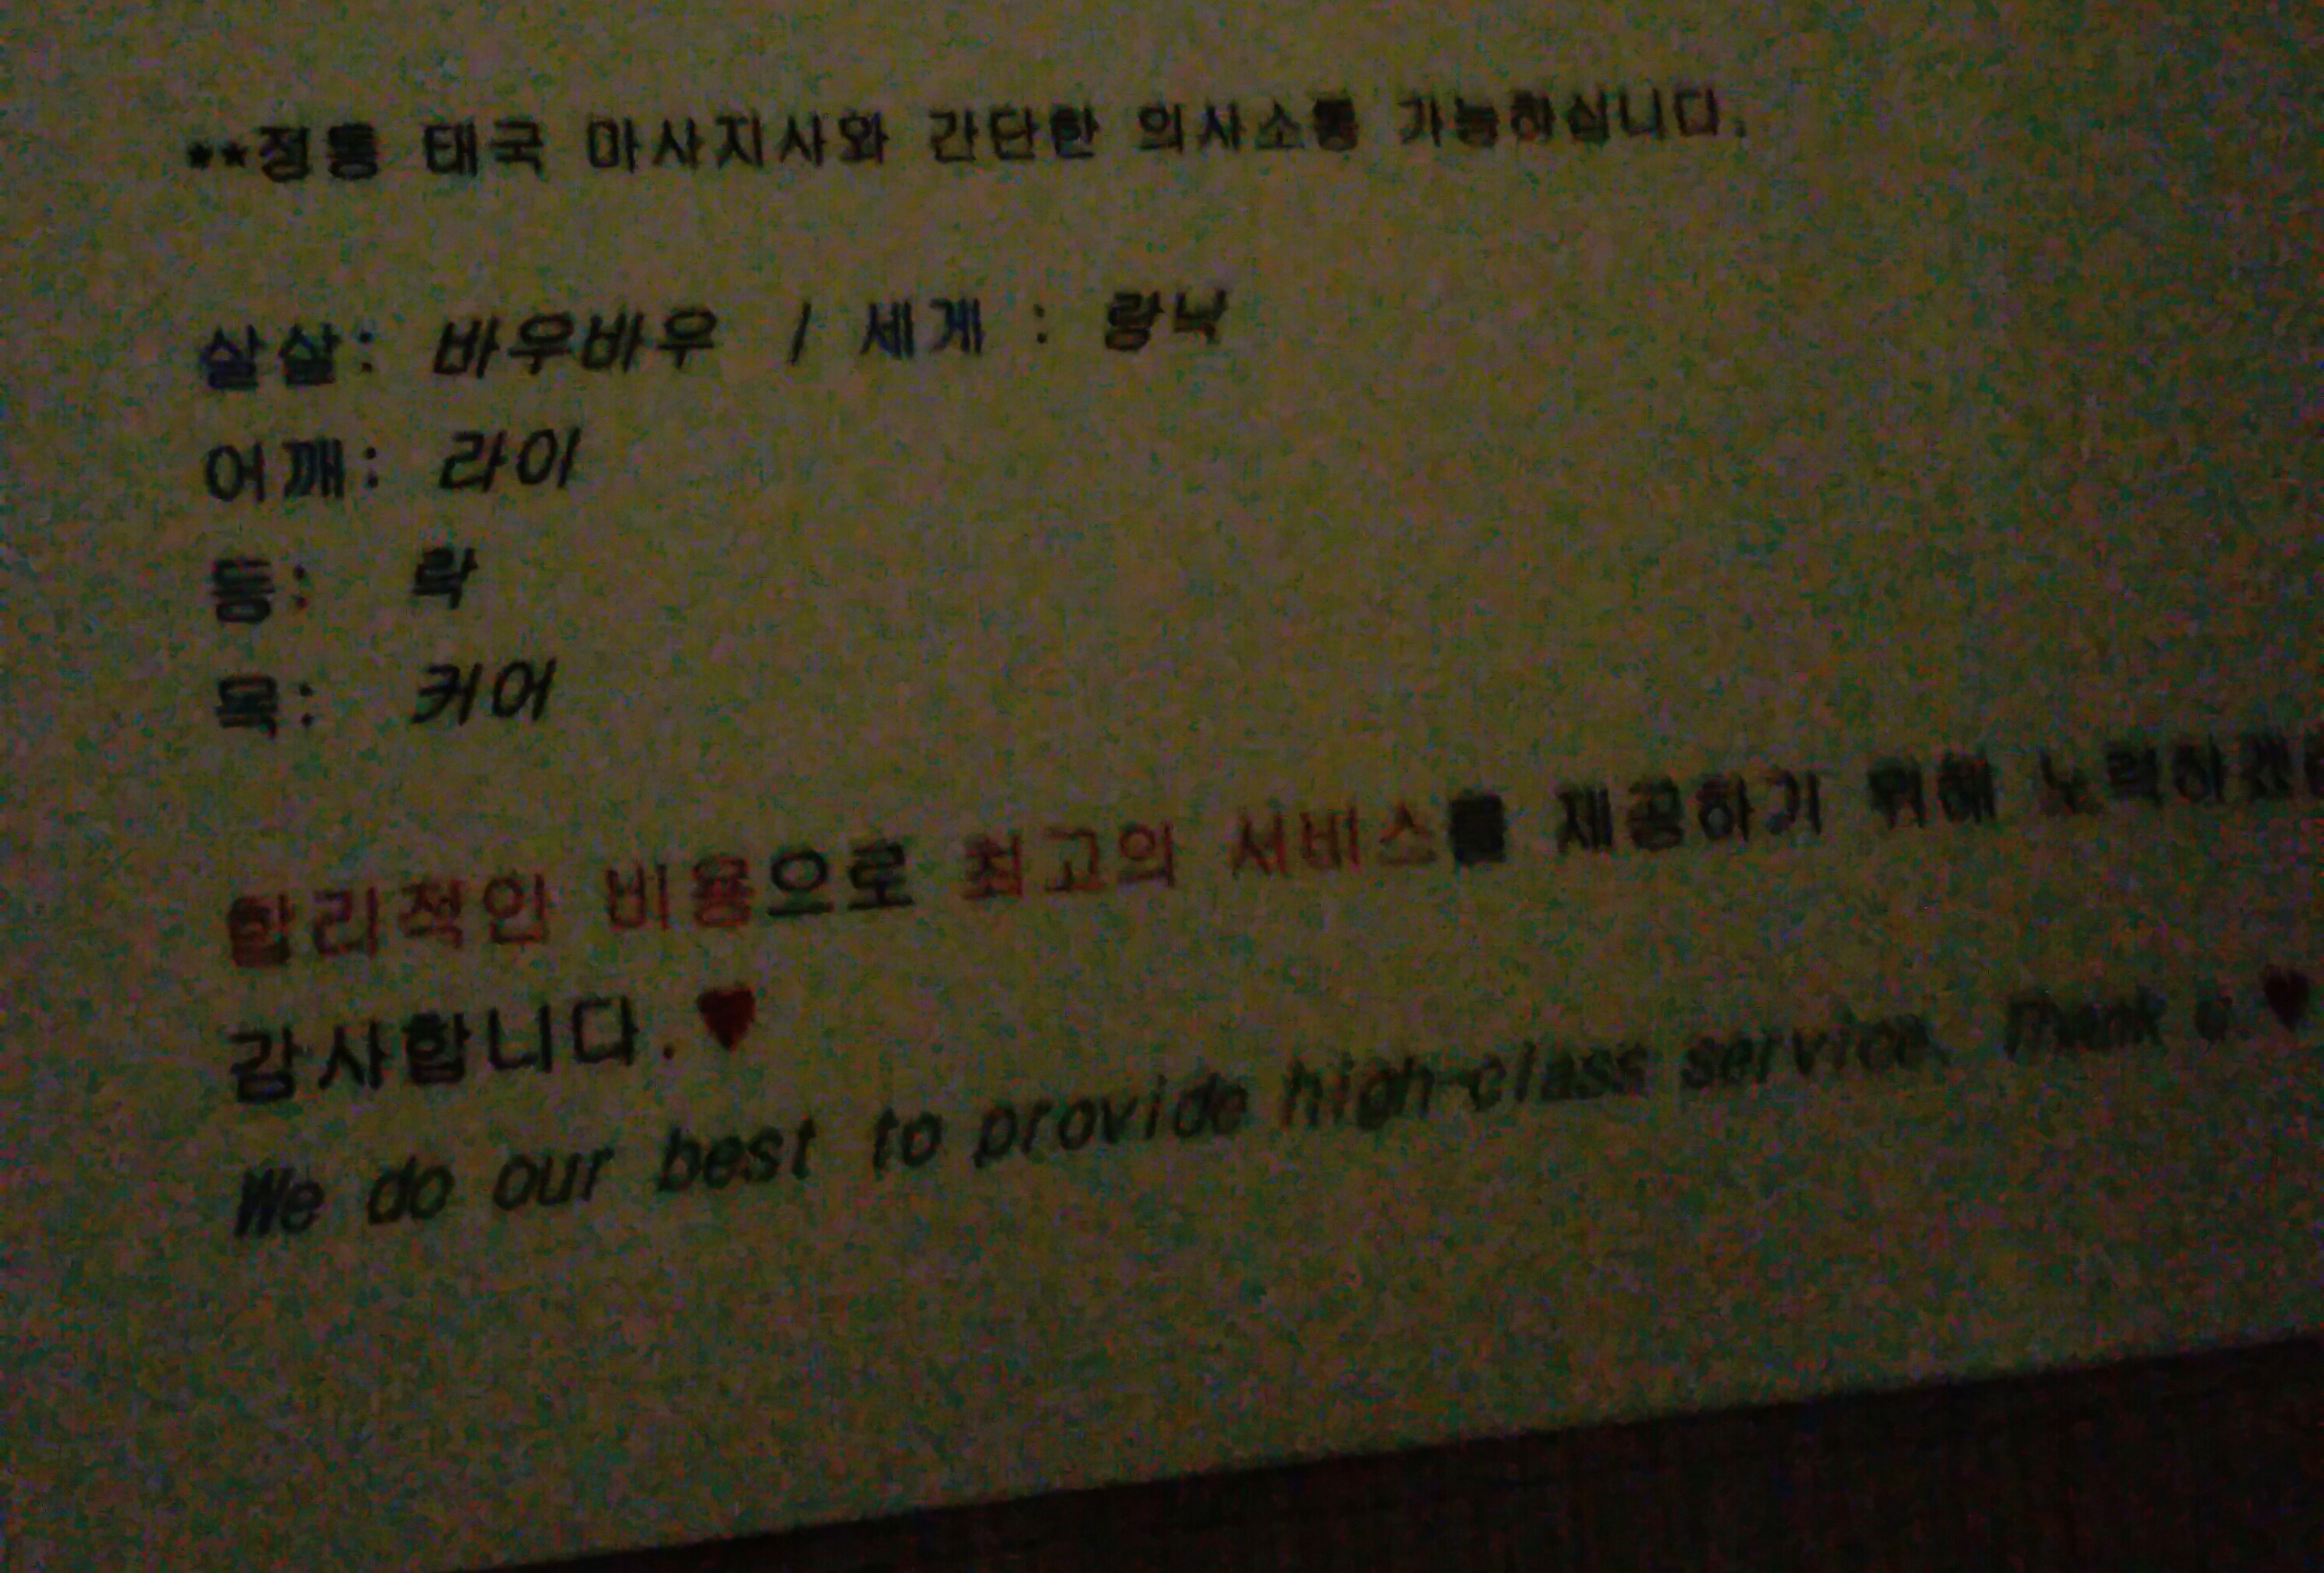 **정통 태국 마사지사와 간단한 의사소통 가능하십니다.
살살: 바우바우 / 세게 : 랑낙
어깨: 라이
등: 락
목: 커어
합리적인 비용으로 최고의 서비스를 제공하기 위해 노력하겠
감사합니다.♥
We do our best to provide high-class service. Thank u.♥